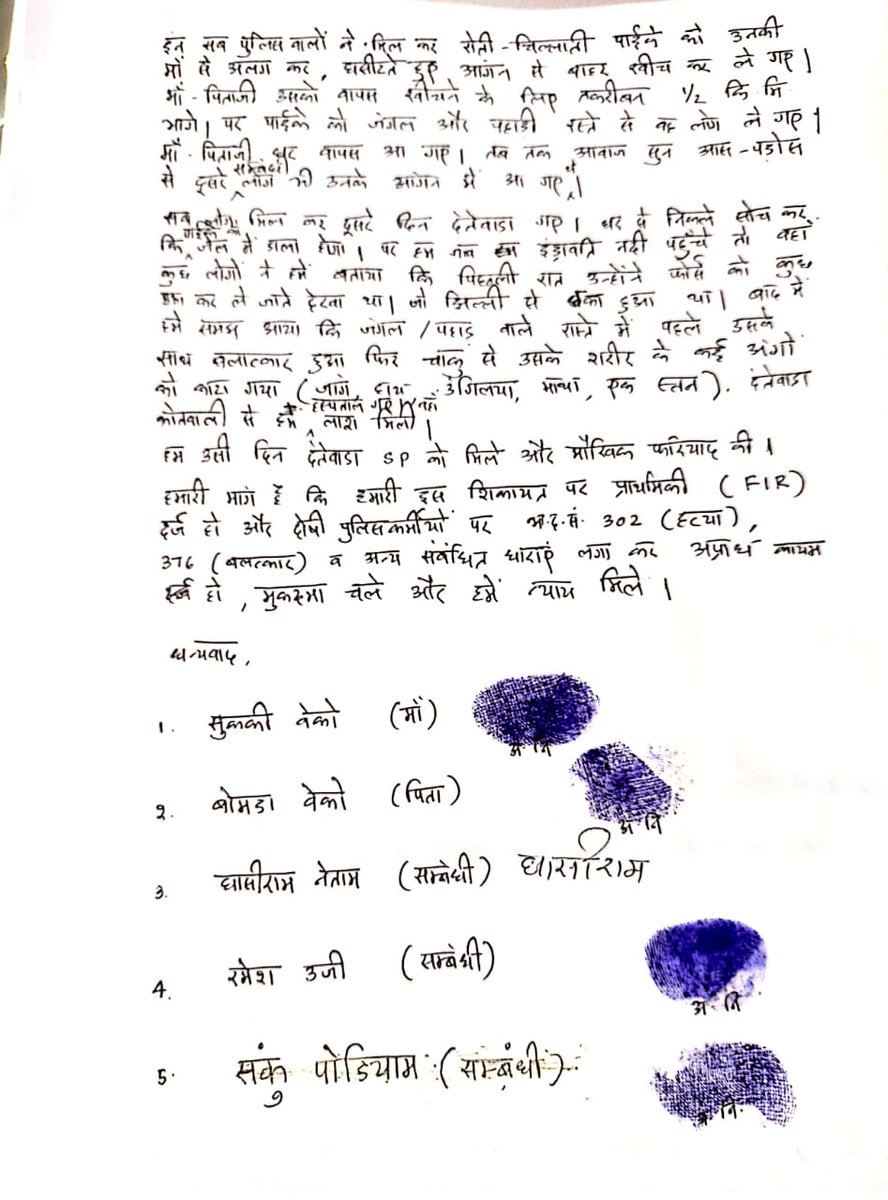 इन सब पुलिस वालों ने मिल कर रोती-चिल्लाती पाईके को उनकी
माँ से अलग कर, घसीटते हुए आगंन से बाहर खींच कर ले गए।
माँ-पिताजी उसको वापस खीचने के लिए तकरीबन 1/2 कि मि
भागे। पर पाईके को जंगल और पहाडी रास्ते से वह लोग ले गए।
माँ-पिताजी घर वापस आ गए। तब तक आवाज सुन आस-पड़ोस
से दूसरे सम्बंधी लोग भी उनके आगंन में आ गए थे।
सब लोग मिल कर दूसरे दिन दंतेवाडा गए। घर से निकले सोच कर
कि पाईके को जेल में डाला होगा। पर हम जब इंद्रावति नदी पहुँचे तो वहाँ
कुछ लोगों ने हमें बताया कि पिछली रात उन्होंने फोर्स को कुछ
उठा कर ले जाते देखा था। जो झिल्ली से ढका हुआ था। बाद में
हमे समझ आया कि जंगल / पहाड़ वाले रास्ते में पहले उसके
साथ बलात्कार हुआ फिर चाकु से उसके शरीर के कई अंगो
को काटा गया (जांग, हाथ उंगलिया, माथा, एक स्तन). दंतेवाडा
कोतवाली से हम हस्पताल गए वहाँ लाश मिली।
हम उसी दिन दंतेवाडा SP को मिले और मौखिक फरियाद की।
हमारी मागं है कि हमारी इस शिकायत पर प्राथमिकी (FIR)
दर्ज हो और दोषी पुलिसकर्मीयों पर भा.द.सं. 302 (हत्या),
376 (बलत्कार) व अन्य संबंधित धाराएं लगा कर अप्राध कायम
हो, मुकदमा चले और हमें न्याय मिले।
धन्यवाद,
1. सुककी वेको (माँ)
अ. नि
2. बोमडा वेको (पिता)
अ. नि
3. घासीराम नेताम (सम्बंधी) घासीराम
4. रमेश उजी (सम्बंधी)
अ. नि
5. संकु पोडियाम (सम्बंधी)
अ. नि.